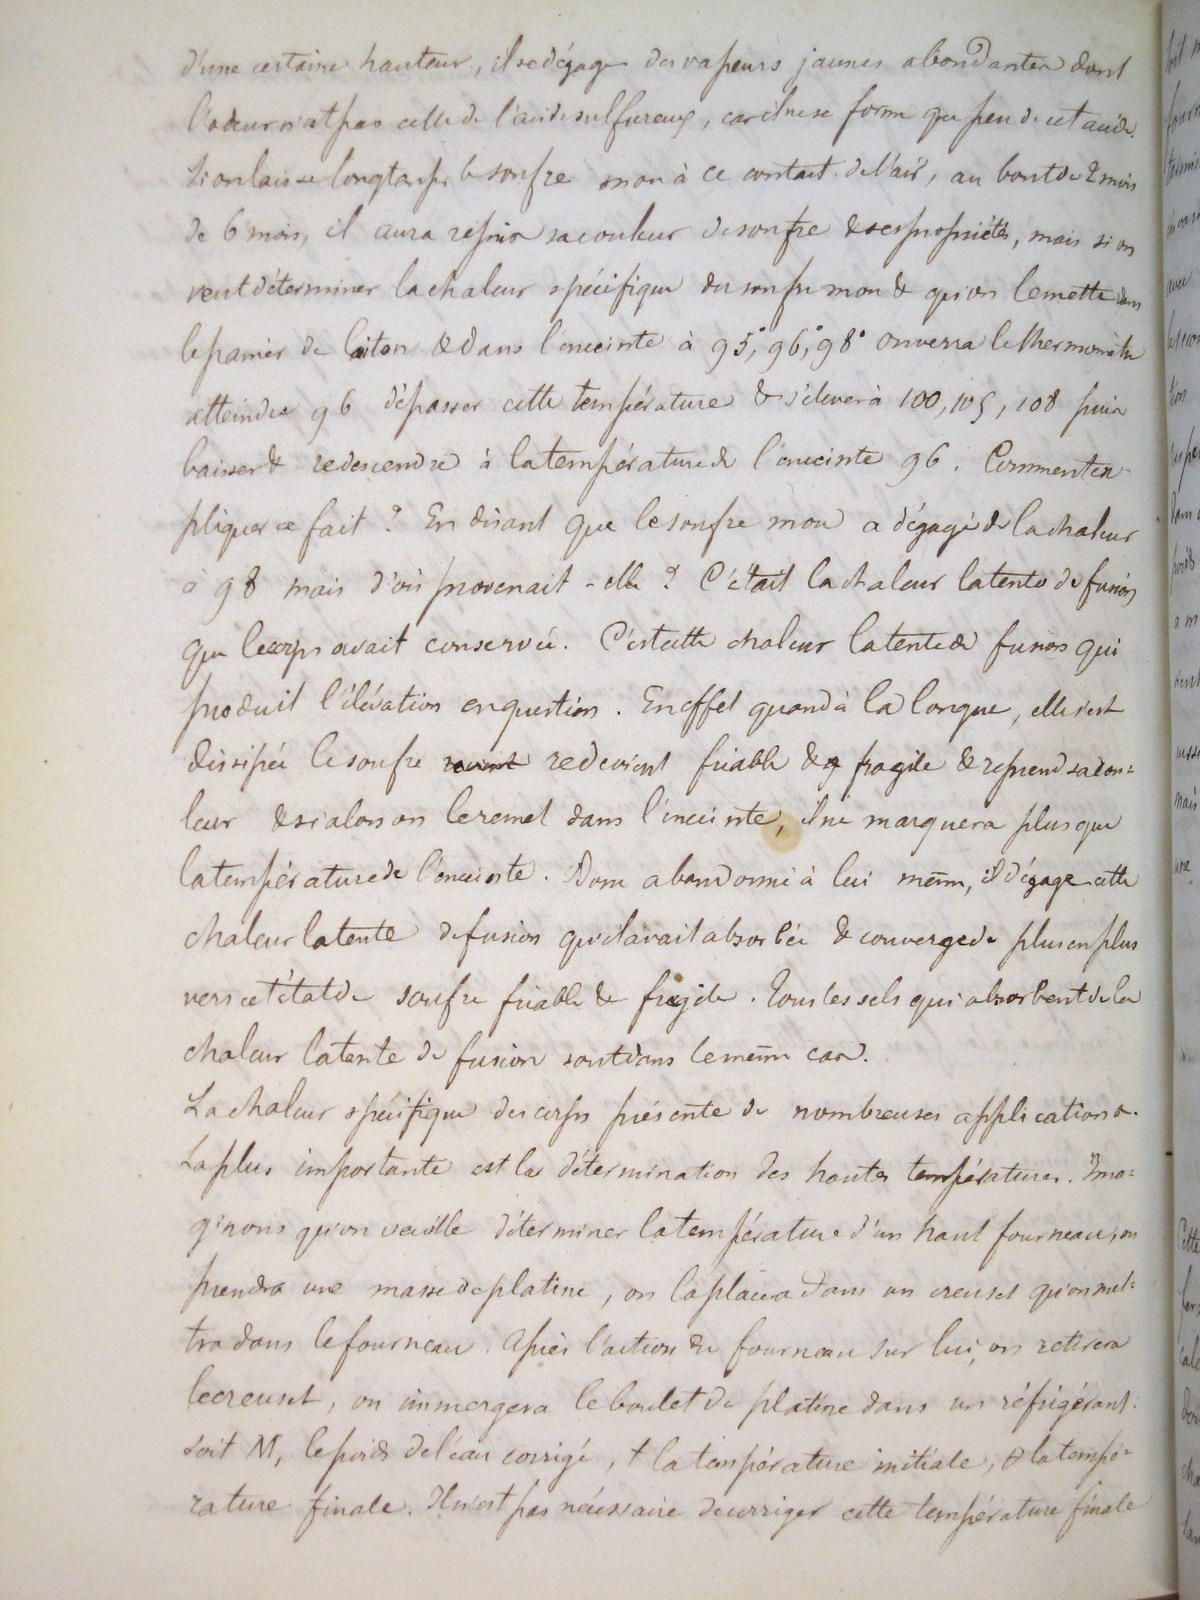 d'une certaine hauteur, il se dégage des vapeurs jaunes abondantes dont
l'odeur n'est pas celle de l'acide sulfureux, car il ne se forme que peu de cet acide.
Si on laisse longtemps le soufre mou à ce contact de l'air, au bout de 2 mois
de 6 mois, il aura repris sa couleur de soufre & ses propriétés, mais si on
veut déterminer la chaleur spécifique du soufre mou & qu'on le mette dans
le panier de laiton & dans l'enceinte à 95°, 96°, 98° on verra le thermomètre
atteindre 96 dépasser cette température & s'élever à 100, 105, 108 puis
baisser & redescendre à la température de l'enceinte 96. Comment ex-
pliquer ce fait ? En disant que le soufre mou a dégagé de la chaleur
à 98 mais d'où provenait-elle ? C'était la chaleur latente de fusion
que le corps avait conservée. C'est cette chaleur latente de fusion qui
produit l'élévation en question. En effet quand à la longue, elle s'est
dissipée le soufre redevient friable & fragile & reprend sa cou=
leur & si alors on le remet dans l'enceinte, il ne marquera plus que
la température de l'enceinte. Donc abandonné à lui même, il dégage cette
chaleur latente de fusion qu'il avait absorbée & converge de plus en plus
vers cet état de soufre friable & fragile. Tous les sels qui absorbent de la
chaleur latente de fusion sont dans le même cas.
La chaleur spécifique des corps présente de nombreuses applications.
La plus importante est la détermination des hautes températures. Ima=
ginons qu'on veuille déterminer la température d'un haut fourneau, on
prendra une masse de platine, on la placera dans un creuset qu'on met=
tra dans le fourneau. Après l'action du fourneau sur lui, on retirera
le creuset, on immergera le boulet de platine dans un réfrigérant.
Soit M, le poids de l'eau corrigé, t la température initiale, θ la tempé=
rature finale. Il n'est pas nécessaire de corriger cette température finale